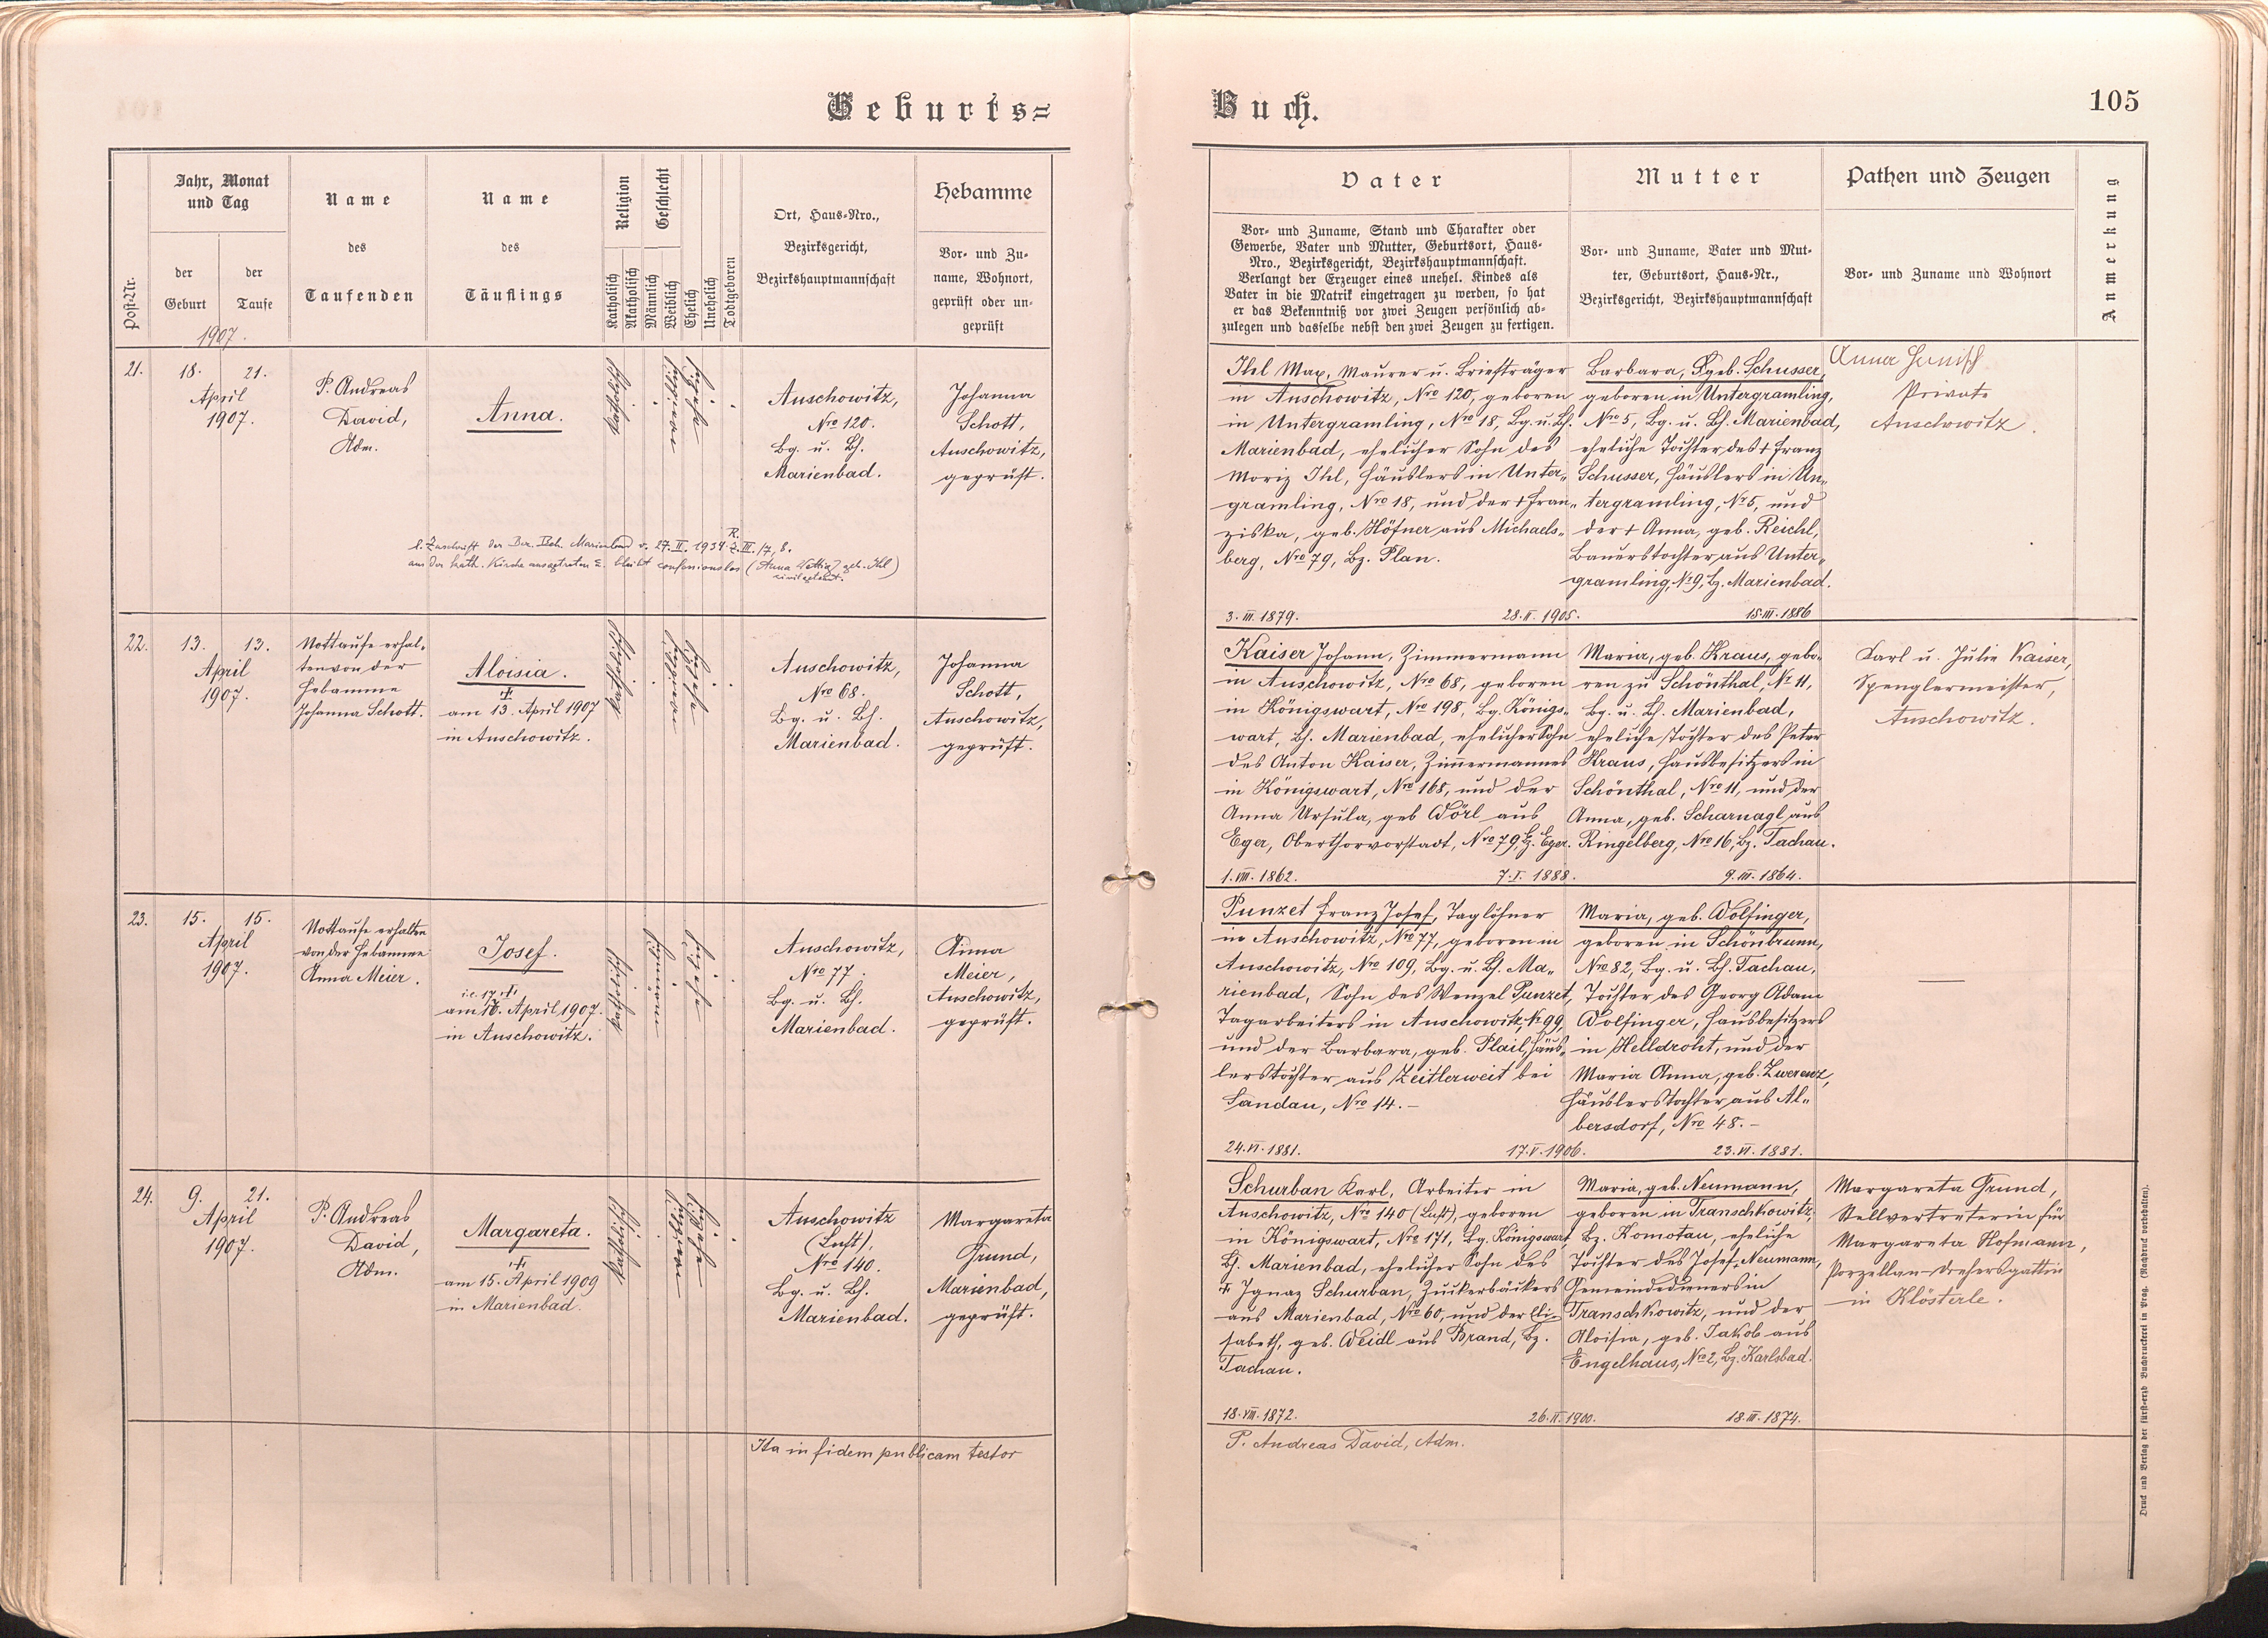 Geburts=
Buch.
105
Post-Nr.
Jahr, Monat
und Tag
der
Geburt
der
Taufe
1907.
Name
des
Taufenden
Name
des
Täuflings
Religion
Katholisch
Akatholisch
Geschlecht
Männlich
Weiblich
Ehelich
Unehelich
Todtgeboren
Ort, Haus-Nro.,
Bezirksgericht,
Bezirkshauptmannschaft
Hebamme
Vor- und Zu-
name, Wohnort,
geprüft oder un-
geprüft
Vater
Vor- und Zuname, Stand und Charakter oder
Gewerbe, Vater und Mutter, Geburtsort, Haus-
Nro., Bezirksgericht, Bezirkshauptmannschaft.
Verlangt der Erzeuger eines unehel. Kindes als
Vater in die Matrik eingetragen zu werden, so hat
er das Bekenntniß vor zwei Zeugen persönlich ab-
zulegen und dasselbe nebst den zwei Zeugen zu fertigen.
Mutter
Vor- und Zuname, Vater und Mut-
ter, Geburtsort, Haus-Nr.,
Bezirksgericht, Bezirkshauptmannschaft
Pathen und Zeugen
Vor- und Zuname und Wohnort
Anmerkung
21.
18. 21.
April
1907.
P. Andreas
David,
Adm.
Anna.
katholisch
weiblich
ehelich
Auschowitz,
Nro 120.
Bg. u. Bh.
Marienbad.
Johanna
Schott,
Auschowitz,
geprüft.
l. Zuschrift der Bez. Beh. Marienbad v. 27. II. 1934 R. Z. III./7, 8.
aus der kath. Kirche ausgetreten u. bleibt confessionslos (Anna geb. Ihl)
Ihl Max, Maurer u. Briefträger
in Auschowitz, Nro 120, geboren
in Untergramling, Nro 18, Bg. u. Bh.
Marienbad, ehelicher Sohn des
Moriz Ihl, Häuslers in Unter-
gramling, Nro 18, und der + Fran-
ziska, geb. Höfner aus Michaels-
berg, Nro 79, Bz. Plan.
3. III. 1879. 28. II. 1905.
Barbara, geb. Schusser,
geboren in Untergramling,
Nro 5, Bg. u. Bh. Marienbad,
eheliche Tochter des + Franz
Schusser, Häuslers in Un-
tergramling, Nr. 5, und
der + Anna, geb. Reichl,
Bauerstochter aus Unter-
gramling, Nr. 9, Bz. Marienbad.
15. III. 1886
Anna Hanisch
Private
Auschowitz.
22.
13. 13.
April
1907.
Nottaufe erhal-
ten von der
Hebamme
Johanna Schott.
Aloisia.
+
am 13. April 1907
in Auschowitz.
katholisch
weiblich
ehelich
Auschowitz,
Nro 68.
Bg. u. Bh.
Marienbad.
Johanna
Schott,
Auschowitz,
geprüft.
Kaiser Johann, Zimmermann
in Auschowitz, Nro 68, geboren
in Königswart, Nro 198, Bg. Königs-
wart, Bh. Marienbad, ehelicher Sohn
des Anton Kaiser, Zimmermannes
in Königswart, Nro 168, und der
Anna Ursula, geb Dörl aus
Eger, Oberthorvorstadt, Nro 79, Bz. Eger.
1. VIII. 1862. 7. I. 1888.
Maria, geb. Kraus, gebo-
ren zu Schönthal, Nr. 11,
Bg. u. Bh. Marienbad,
eheliche Tochter des Peter
Kraus, Hausbesitzers in
Schönthal, Nro 11, und der
Anna, geb. Scharnagl aus
Ringelberg, Nro 16, Bz. Tachau.
9. III. 1864.
Karl u. Julie Kaiser,
Spenglermeister,
Auschowitz.
23.
15. 15.
April
1907.
Nottaufe erhalten
von der Hebamme
Anna Meier.
Josef.
i. e. 17. +
am 16. April 1907.
in Auschowitz.
katholisch
männlich
ehelich
Auschowitz,
Nro 77.
Bg. u. Bh.
Marienbad.
Anna
Meier,
Auschowitz,
geprüft.
Punzet Franz Josef, Taglöhner
in Auschowitz, Nro 77, geboren in
Auschowitz, Nro 109, Bg. u. Bh. Ma-
rienbad, Sohn des Wenzel Punzet,
Tagarbeiters in Auschowitz, Nr. 99,
und der Barbara, geb. Plail, Häus-
lerstochter aus Zeitlerweit bei
Sandau, Nro 14. –
24. VI. 1881. 17. V. 1906.
Maria, geb. Wolfinger,
geboren in Schönbrunn,
Nro 82, Bg. u. Bh. Tachau,
Tochter des Georg Adam
Wolfinger, Hausbesitzers
in Helldroht, und der
Maria Anna, geb. Zwerenz,
Häuslerstochter aus Al-
bersdorf, Nro 48. –
23. VI. 1881.
—
24.
9. 21.
April
1907.
P. Andreas
David,
Adm.
Margareta.
+
am 15. April 1909
in Marienbad.
katholisch
weiblich
ehelich
Auschowitz
(Luft),
Nro 140.
Bg. u. Bh.
Marienbad.
Margareta
Grund,
Marienbad,
geprüft.
Schurban Karl, Arbeiter in
Auschowitz, Nro 140 (Luft), geboren
in Königswart, Nro 171, Bg. Königswart
Bh. Marienbad, ehelicher Sohn des
+ Ignaz Schurban, Zuckerbäckers
aus Marienbad, Nro 60, und der Eli-
sabeth, geb. Weidl aus Brand, Bz.
Tachau.
18. VIII. 1872. 26. II. 1900.
Maria, geb. Neumann,
geboren in Transchkowitz,
Bz. Komotau, eheliche
Tochter des Josef Neumann,
Gemeindedieners in
Transchkowitz, und der
Aloisia, geb. Jakob aus
Engelhaus, Nro 2, Bz. Karlsbad.
18. III. 1874.
Margareta Grund,
Stellvertreterin für
Margareta Hofmann,
Porzellan-Drehersgattin
in Klösterle.
Ita in fidem publicam testor
P. Andreas David, Adm.
Druck und Verlag der fürst-erzb Buchdruckerei in Prag. (Nachdruck vorbehalten).